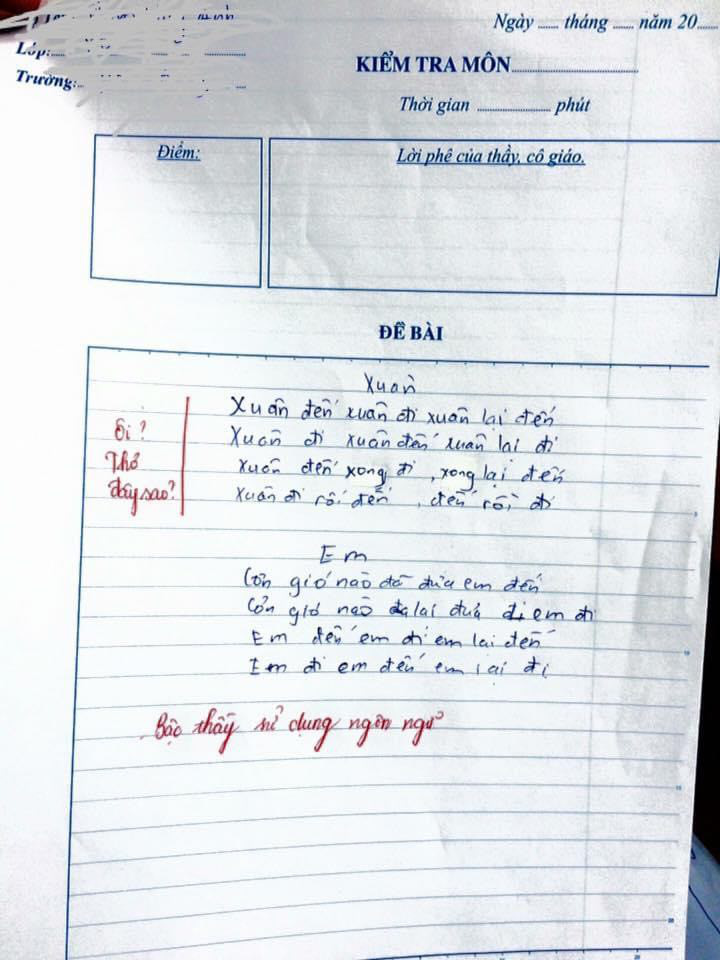 Ngày ...... tháng ...... năm 20......
Lớp:
KIỂM TRA MÔN
Trường:
Thời gian ............ phút
Điểm:
Lời phê của thầy, cô giáo.
ĐỀ BÀI
Xuân
Xuân đến xuân đi xuân lại đến
Xuân đi xuân đến xuân lại đi
Xuân đến xong đi, xong lại đến
Xuân đi rồi đến, đến rồi đi
Ôi?
Thơ
đây sao?
Em
Cơn gió nào đã đưa em đến
Cơn gió nào lại đưa em đi
Em đến em đi em lại đến
Em đi em đến em lại đi
Bậc thầy sử dụng ngôn ngữ